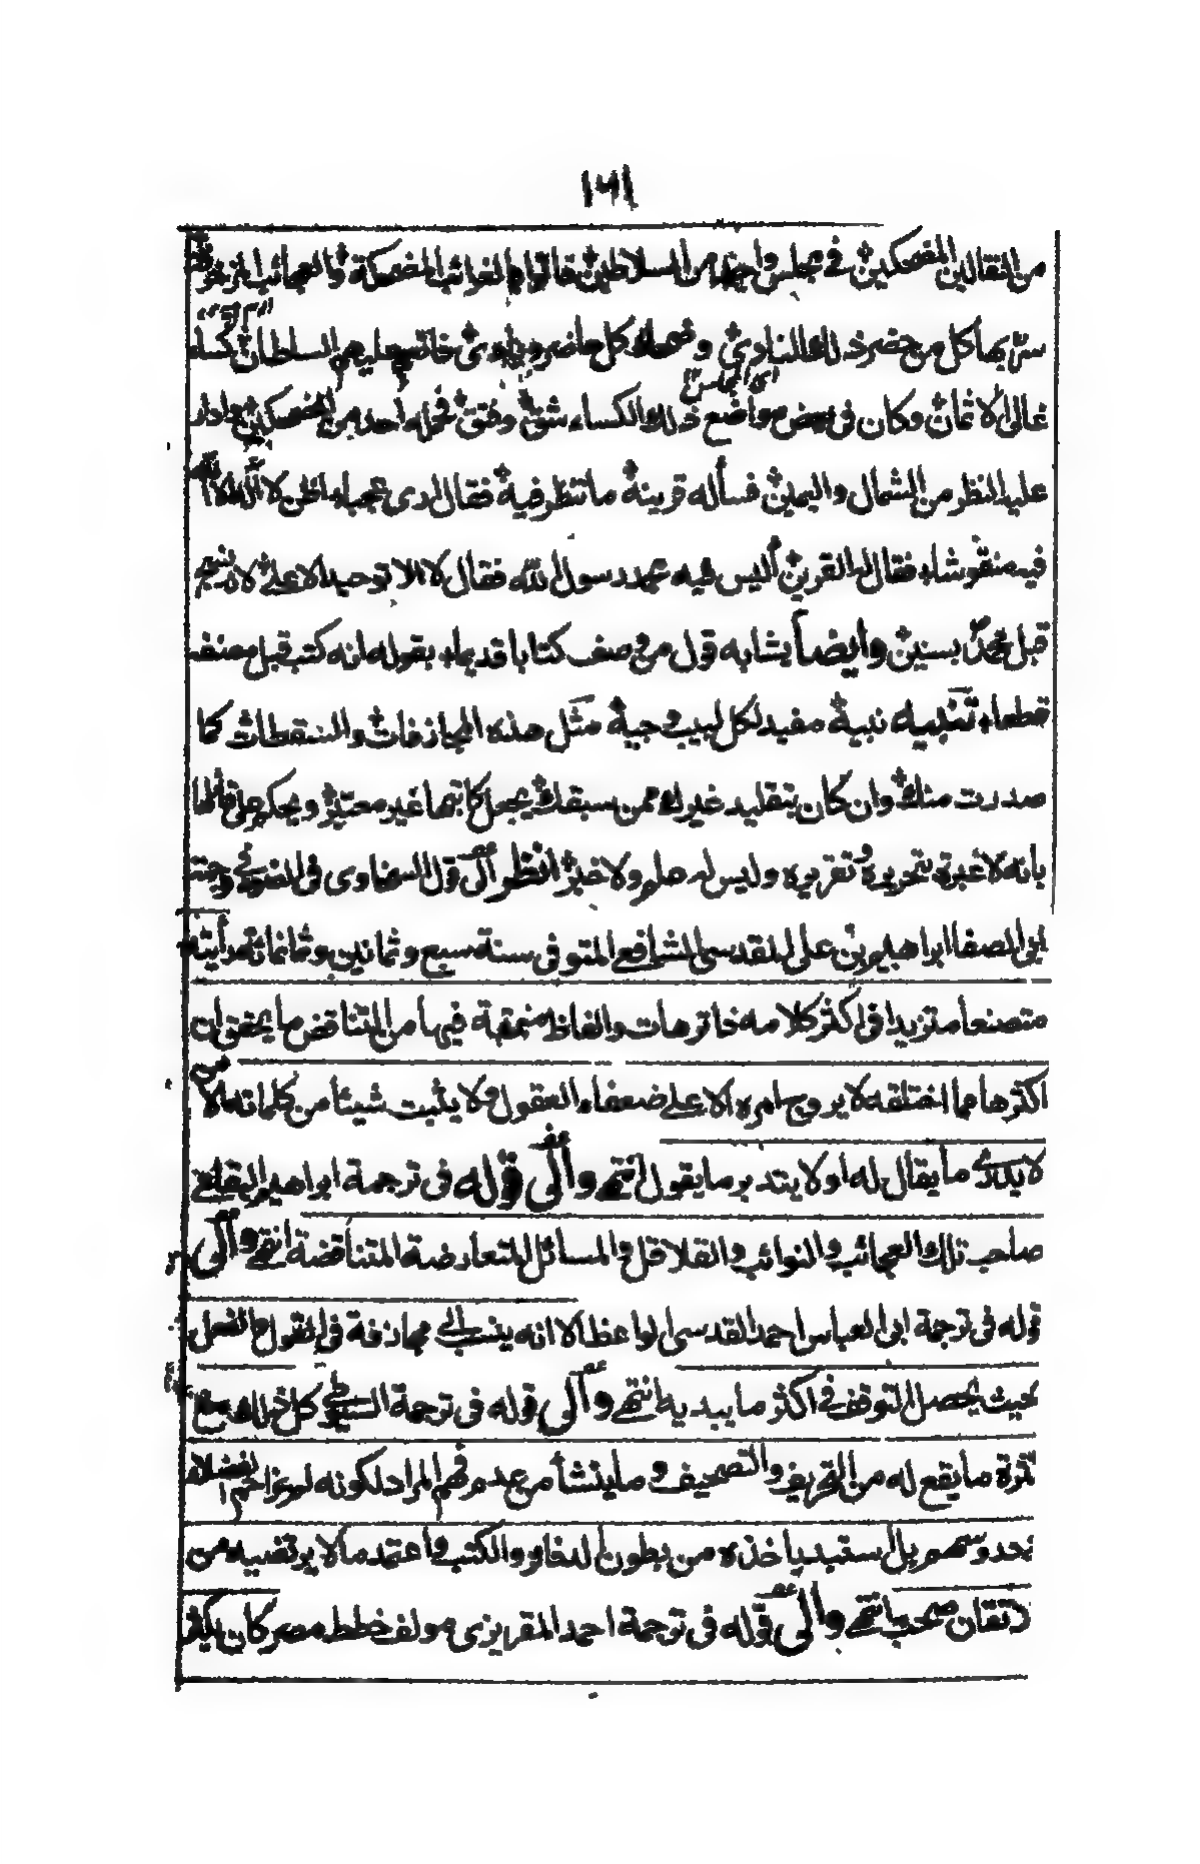 ١٦١
من النقالين المضحكين في مجلس واحد من السلاطين فاتوا بالغرائب المضحكة والعجائب
سر بها كل من حضر ذلك النادي وضحك كل حاضر وبادي فانعم عليهم السلطان كساء
غالى الاثمان وكان في بعض مواضع ذلك الكساء شق وفتق فحمله احد من المضحكين وادار
اي المجلس
عليه النظر من الشمال واليمين فسأله قرينه ما تنظر فيه فقال ارى عجبا اظن لا اله الا الله
فيه منقوشا فقال له القرين أليس فيه محمد رسول الله فقال لا الا توحيد الاعلى لانه نسج
قبل محمد بسنين وايضا يشابه قول من وصف كتابا قديما بقوله انه كتب قبل مصنفه
قطعا تنبيه نبيه مفيد لكل لبيب وجيه مثل هذه المجازفات والسقطات كما
صدرت منك وان كان بتقليد غيرك ممن سبقك يجعل كاتبها غير معتبر ويحكم على قائلها
بانه لا عبرة بتحريره وتقريره وليس له علم ولا خبر انظر الى قول السخاوى في الضوء في ترجمة
ابى الصفا ابراهيم بن على المقدسى الشافعى المتوفى سنة سبع وثمانين وثمانمائة رأيته
متصنعا متزيدا فى اكثر كلامه خاترهات والفاظ منمقة فيها من التناقض ما يحقق ان
اكثرها مما اختلقه لا يروج امره الا على ضعفاء العقول ولا يثبت شيئا من كلماته الا من
لا يدرى ما يقال له او لا يتدبر ما يقول انتهى والى قوله فى ترجمة ابراهيم البقاعى
صاحب تلك العجائب والنوائب والقلاقل والمسائل المتعارضة المتناقضة انتهى والى
قوله فى ترجمة ابى العباس احمد القدسى الواعظ الا انه ينسب الى مجازفة فى القول والفعل
بحيث يحصل التوقف فى اكثر ما يبديه انتهى والى قوله فى ترجمة السيوطى كل ذلك مع
كثرة ما يقع له من التحريف والتصحيف وما ينشأ من عدم فهم المراد لكونه لم يزاحم الفضلاء
دروسهم بل استبد باخذه من بطون الدفاتر والكتب واعتمد ما لا يرتضيه من
الاتقان صحب انتهى والى قوله فى ترجمة احمد المقريزى مولف خطط مصر كان يكثر